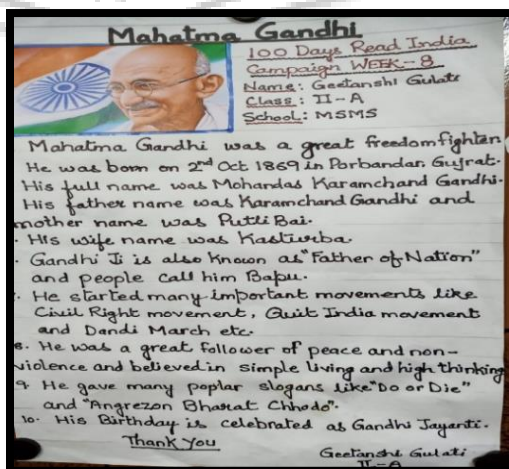 Mahatma Gandhi
100 Days Read India
Campaign WEEK-8
Name: Geetanshi Gulati
Class: II-A
School: MSMS
Mahatma Gandhi was a great freedom fighter
He was born on 2nd Oct 1869 in Porbandar, Gujrat.
His full name was Mohandas Karamchand Gandhi.
His father name was Karamchand Gandhi and
mother name was Putli Bai.
. His wife name was Kasturba.
. Gandhi Ji is also known as "Father of Nation"
and people call him Bapu.
. He started many important movements like
Civil Right movement, Quit India movement
and Dandi March etc.
8. He was a great follower of peace and non-
violence and believed in simple living and high thinking
9. He gave many poplar slogans like "Do or Die"
and "Angrezon Bharat Chhodo".
10. His Birthday is celebrated as Gandhi Jayanti.
Thank You
Geetanshi Gulati
II-A